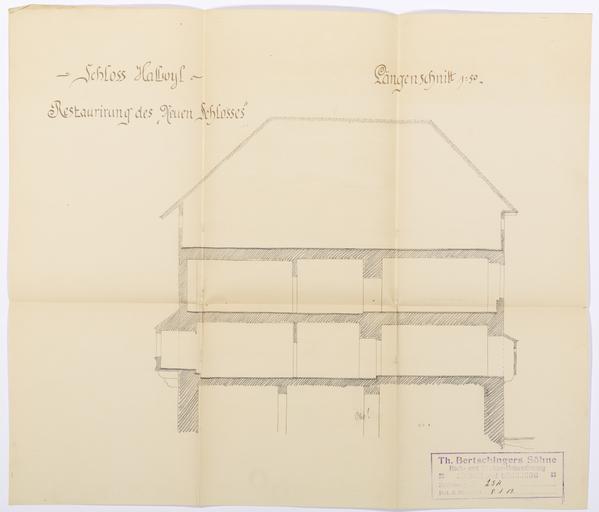 ~ Schloss Hallwyl ~
Längenschnitt 1:50.
Restaurirung des „Neuen Schlosses"
Th. Bertschingers Söhne
Hoch- und